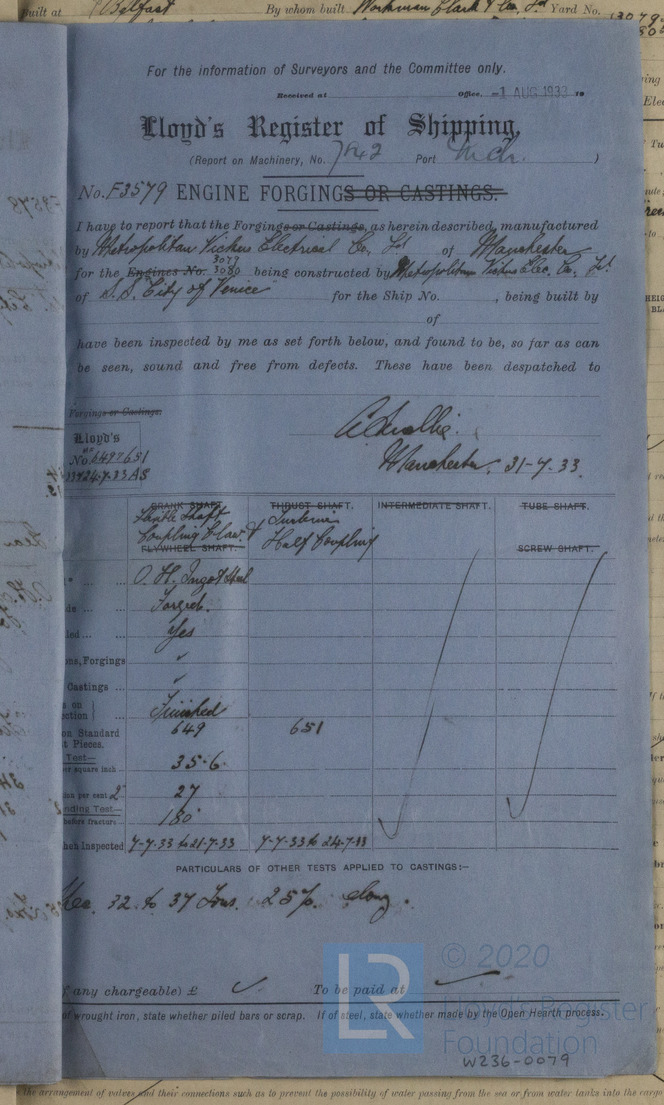 Built at Belfast By whom built Workman Clark & Co., Ld Yard No.
For the information of Surveyors and the Committee only.
Received at Office. -1 AUG 1933 19
Lloyd's Register of Shipping,
(Report on Machinery, No. 7842 Port Mch. )
No. F3579 ENGINE FORGINGS OR CASTINGS.
I have to report that the Forgings or Castings, as herein described, manufactured
by Metropolitan Vickers Electrical Co. Ld of Manchester
3079
for the Engines No. 3080 being constructed by Metropolitan Vickers Elec. Co. Ld.
of S.S. "City of Venice" for the Ship No. , being built by
of
have been inspected by me as set forth below, and found to be, so far as can
be seen, sound and free from defects. These have been despatched to
Forgings or Castings.
Lloyd's
No 649 & 651
24.7.33 AS
Manchester. 31-7.33.
CRANK SHAFT THRUST SHAFT. INTERMEDIATE SHAFT. TUBE SHAFT.
Shaft Turbine
Coupling Claw & Half Coupling
FLYWHEEL SHAFT. SCREW SHAFT.
O. H. Ingot Steel
Forged.
Yes
ons, Forgings ✓
Castings ... "
s on
ection Finished
on Standard 649 651
t Pieces.
Test— 35.6
er square inch
per cent 2" 27
nding Test—
before fracture 180°
hen Inspected 7-7-33 to 21-7-33 7-7-33 to 24-7-33
PARTICULARS OF OTHER TESTS APPLIED TO CASTINGS:—
32 to 37 Tons. 25% elong.
f any chargeable) £ ✓ To be paid at ✓
of wrought iron, state whether piled bars or scrap. If of steel, state whether made by the Open Hearth process.
LR © 2020
Lloyd's Register
Foundation
W236-0079
the arrangement of valves and their connections such as to prevent the possibility of water passing from the sea or from water tanks into the cargo